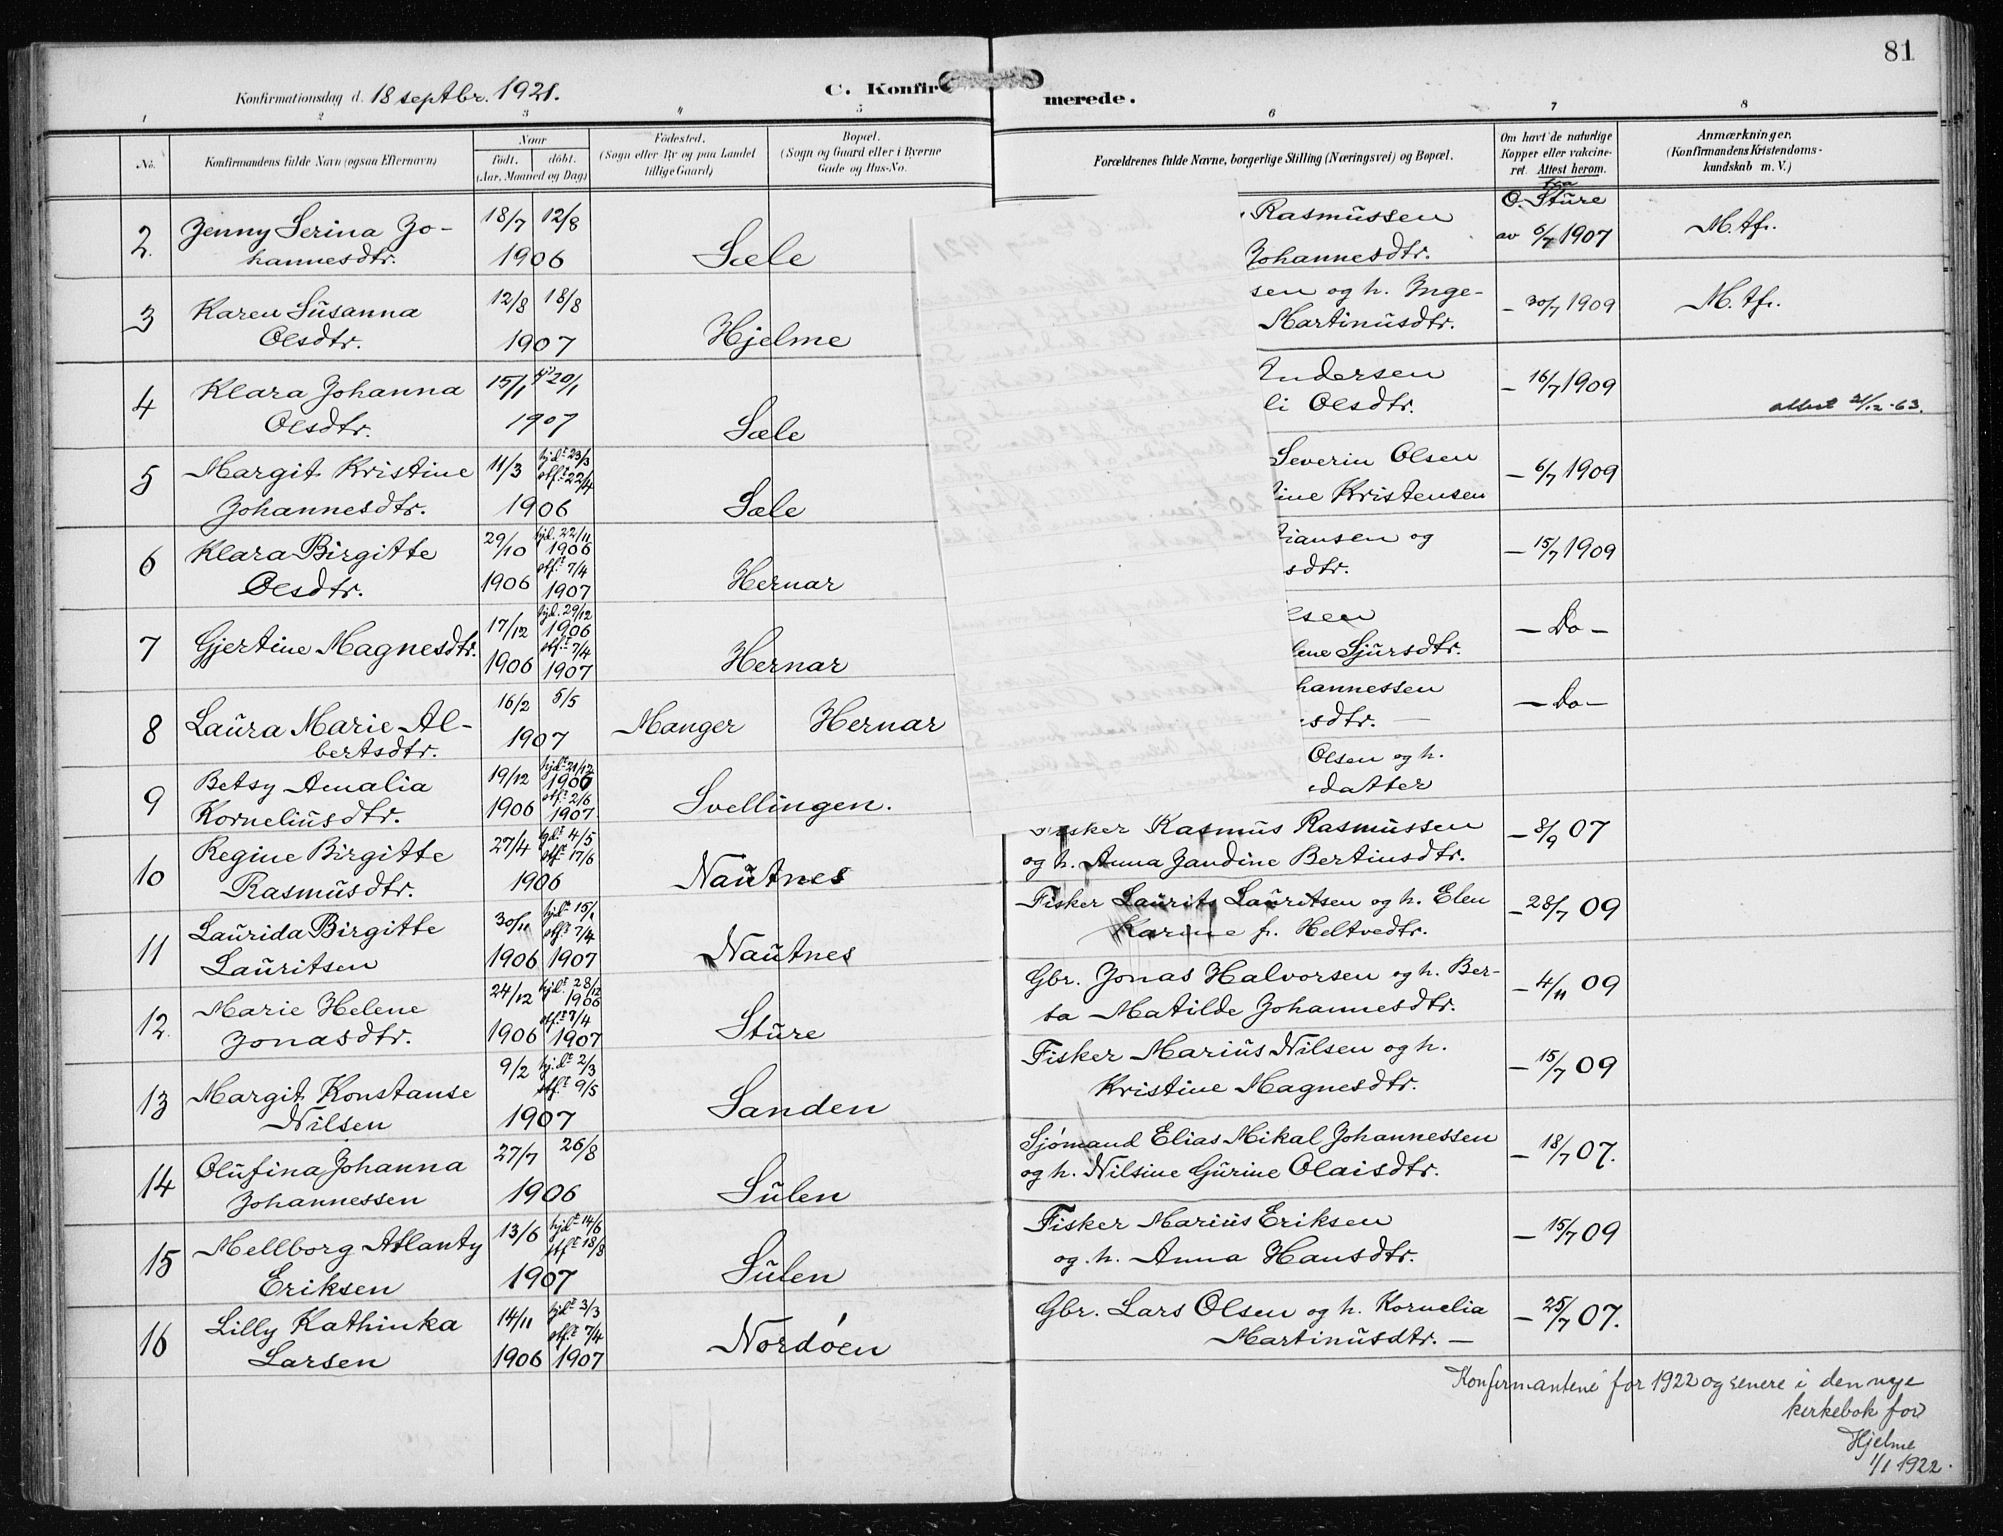 81
Konfirmationsdag d. 18 septbr. 1921.
C. Konfir
merede.
1 2 3 4 5 6 7 8
No.
Konfirmandens fulde Navn (ogsaa Efternavn)
Naar
født. døbt.
(Aar, Maaned og Dag)
Fødested.
(Sogn eller By og paa Landet
tillige Gaard)
Bopæl.
(Sogn og Gaard eller i Byerne
Gade og Hus-No.
Forældrenes fulde Navne, borgerlige Stilling (Næringsvei) og Bopæl.
Om havt de naturlige
Kopper eller vakcine-
ret. Attest herom.
Anmærkninger.
(Konfirmandens Kristendoms-
kundskab m. V.)
2. Jenny Serina Jo- 18/7 12/8 Rasmussen O. Sture
hannesdtr. 1906 Sæle Johannesdtr. av 6/7 1907 M.tfr.
3 Karen Susanna 12/8 18/8 sen og h. Inge-
Olsdtr. 1907 Hjelme Martinusdtr. - 30/7 1909 M.tfr.
4 Klara Johanna 15/1 20/1 Andersen
Olsdtr. 1907 Sæle li Olsdtr. - 16/7 1909 attest 21/12-63.
5 Margit Kristine 11/3 hjdt 23/3 stf.t 22/4 Severin Olsen
Johannesdtr. 1906 Sæle ine Kristensen - 6/7 1909
6 Klara Birgitte 29/10 hjd. 22/11 1906 tiansen og
Olsdtr. 1906 stf.t 7/4 1907 Hernar sdtr. - 15/7 1909
7 Gjertine Magnesdtr. 17/12 hjd. 29/12 1906 lsen
1906 stf.t 7/4 1907 Hernar lene Sjursdtr. - Do -
8 Laura Marie Al- 16/2 5/5 Manger Hernar hannessen
bertsdtr. 1907 sdtr. - - Do -
9 Betsy Amalia 19/12 hjdt 21/12 1906 Olsen og h.
Korneliusdtr. 1906 stf.t 2/6 1907 Svellingen. datter
10 Regine Birgitte 27/4 hjdt 4/5 stf.t 17/6 Fisker Rasmus Rasmussen
Rasmusdtr. 1906 Nautnes og h. Anna Jandine Bertinsdtr. - 8/9 07
11 Laurida Birgitte 30/11 hjdt 15/1 stf.t 7/4 Fisker Laurits Lauritsen og h. Elen
Lauritsen 1906 1907 Nautnes Karine f. Heltvedtr. - 28/7 09
12. Marie Helene 24/12 hjdt. 28/12 1906 Gbr. Jonas Halvorsen og h. Ber-
Jonasdtr. 1906 stf.t 7/4 1907 Sture ta Matilde Johannesdtr. - 4/11 09
13 Margit Konstanse 9/2 hj.dt 2/3 stf.t 9/5 Fisker Marius Nilsen og h.
Nilsen 1907 Sanden Kristine Magnesdtr. - 15/7 09
14 Olufina Johanna 27/7 26/8 Sjømand Elias Mikal Johannessen
Johannessen 1906 Sulen og h. Nilsine Gurine Olaisdtr. - 18/7 07.
15 Mellborg Atlanty 13/6 hjdt 14/6 stf.t 18/8 Fisker Marius Eriksen
Eriksen 1907 Sulen og. h. Anna Hansdtr. - 15/7 09
16 Lilly Kathinka 14/11 hjdt 3/3 stf.t 7/4 Gbr. Lars Olsen og h. Kornelia
Larsen 1906 1907 Nordøen Martinusdtr. - - 25/7 07.
Konfirmantene for 1922 og senere i den nye
kirkebok for
Hjelme
1/1 1922.